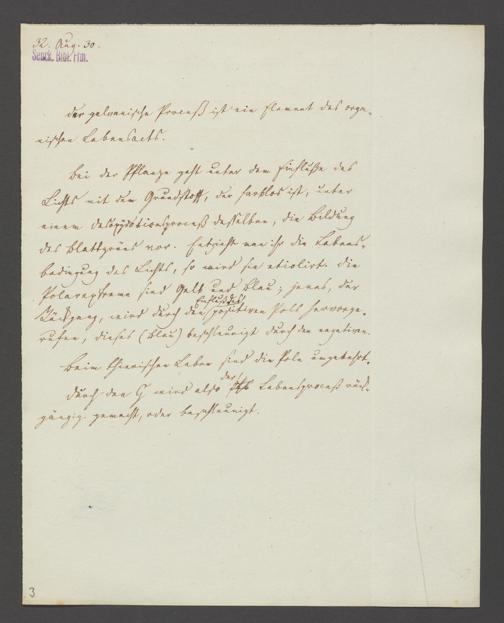 32. Aug. 30.
Senck. Bibl. Ffm.
Der galvanische Proceß ist ein Element des orga-
nischen Lebensacts.
Bei der Pflanze geht unter dem Einfluße des
Lichts mit dem Grundstoff, der farblos ist, unter
einem Desoxydationsproceß desselben, die Bildung
des Blattgrüns vor. Entzieht man ihr die Lebens-
bedingung des Lichts, so wird sie etiolirt. Die
Polarextreme sind Gelb und Blau; jenes, der
Rückgang, wird durch den Einfluß des positiven Pols hervorge-
rufen, dieses (Blau) beschleunigt durch den negativen.
Beim thierischen Leben sind die Pole umgekehrt.
Durch den G wird also der Lebensproceß rück-
gängig gemacht, oder beschleunigt.
3